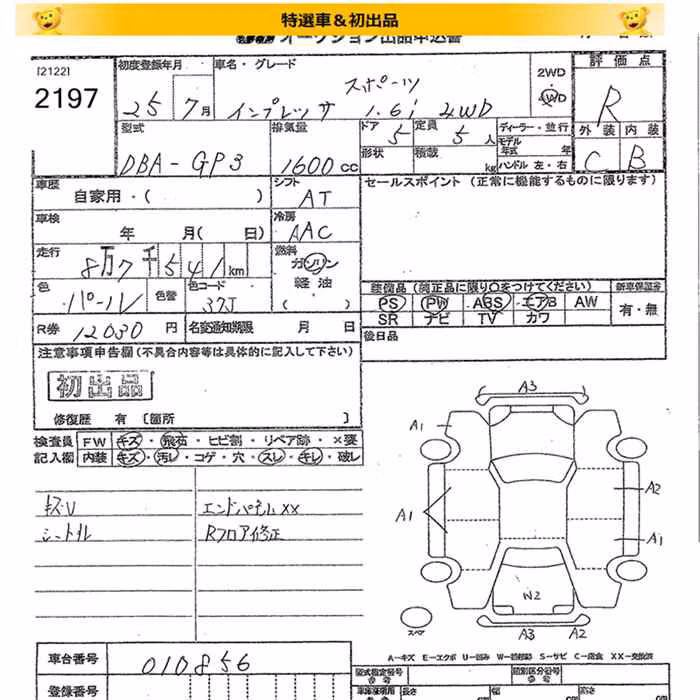 特選車＆初出品
オークション出品申込書
[2122]
2197
初度登録年月
25 7月
車名・グレード
スポーツ
インプレッサ 1.6i 4WD
2WD
4WD
評価点
R
外装 内装
C B
型式
DBA-GP3
排気量
1600cc
ドア 5
定員 5人
形状
積載 kg
ディーラー・並行
モデル年式 年
ハンドル 左・右
車歴
自家用・( )
シフト
AT
セールスポイント (正常に機能するものに限ります)
車検
年 月( 日)
冷房
AAC
走行
8万7千541km
燃料
ガソリン
軽油
( )
色
パール
色替
色コード
37J
装備品 (純正品に限り○をつけてください)
PS PW ABS エアB AW
SR ナビ TV カワ
新車保証書
有・無
R券 12030円
名変通知期限 月 日
後日品
注意事項申告欄 (不具合内容等は具体的に記入して下さい)
初出品
修復歴 有 〔箇所 〕
検査員記入欄
FW キズ・飛石・ヒビ割・リペア跡・×要
内装 キズ・汚レ・コゲ・穴・スレ・キレ・破レ
キズU エンドパネルXX
シートル Rフロア修正
A3
A1
A1
A2
A1
W2
スペア
A3 A2
A－キズ E－エクボ U－凹み W－補修跡 S－サビ C－腐食 XX－交換済
車台番号
010856
登録番号
型式指定番号
類別区分番号
長さ
幅
高さ